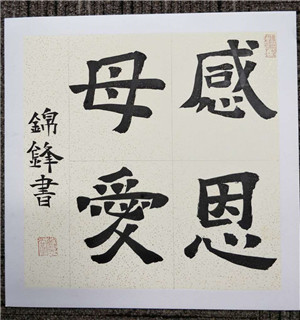 感恩
母愛
錦鋒書